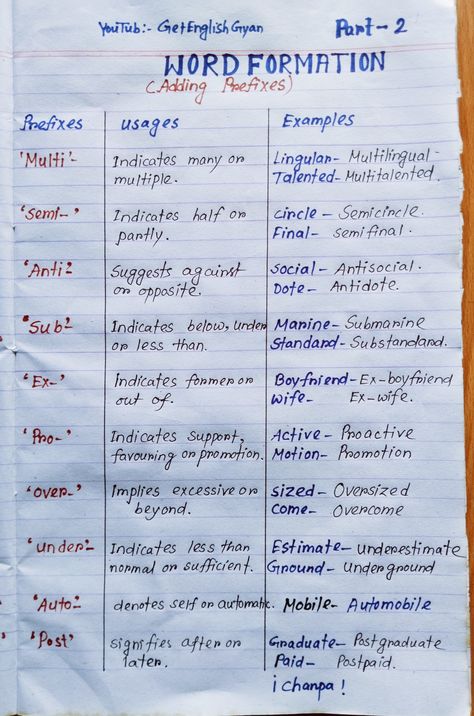 YouTub:- GetEnglishGyan Part-2
WORD FORMATION
(Adding Prefixes)
Prefixes usages Examples
'Multi'- Indicates many or multiple. Lingular- Multilingual- Talented- Multitalented.
'Semi-' Indicates half or partly. circle- Semicircle. Final- semifinal.
'Anti- Suggests against or opposite. Social- Antisocial. Dote- Antidote.
'Sub- Indicates below, under or less than. Marine- Submarine Standard- Substandard.
'Ex-' Indicates former or out of. Boyfriend- Ex-boyfriend wife- Ex-wife.
'Pro-' Indicates support, favouring or promotion. Active- Proactive Motion- Promotion
'over-' Implies excessive or beyond. sized- Oversized Come- Overcome
'under- Indicates less than normal or sufficient. Estimate- underestimate Ground- underground
'Auto- denotes self or automatic. Mobile- Automobile
'Post' signifies after or later. Graduate- Postgraduate Paid- Postpaid.
¡Chanpa!